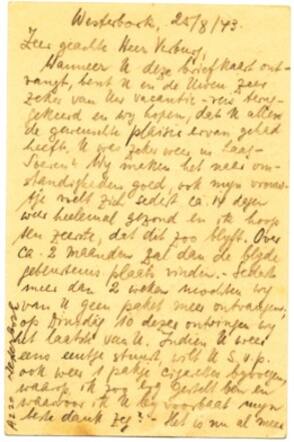 Westerbork, 25/8/43.
Zeer geachte Heer Verburg,
Wanneer U deze briefkaart ont-
vangt, bent U en de Uwen zeer
zeker van Uw vacantie-reis terug-
gekeerd en wij hopen, dat U allen
de gewenschte plaisir ervan gehad
heeft. U was zeker weer in Laag-
Soeren? Wij maken het naar om-
standigheden goed, ook mijn vrouw
voelt zich sedert ca. 14 dagen
weer heelemaal gezond en ik hoop
ten zeerste, dat dit zoo blijft. Over
ca. 2 maanden zal dan de blijde
gebeurtenis plaats vinden. - Sedert
meer dan 2 weken mochten wij
van U geen paket meer ontvangen,
op Dinsdag 10 dezer ontvingen wij
het laatste van U. Indien U weer
eens eentje stuurt, wilt U s.v.p.
ook weer 1 pakje cigaretten bijvoegen,
waarop ik zoo erg gesteld ben en
waarvoor ik U bij voorbaat mijn
beste dank zeg! - Het is nu al meer